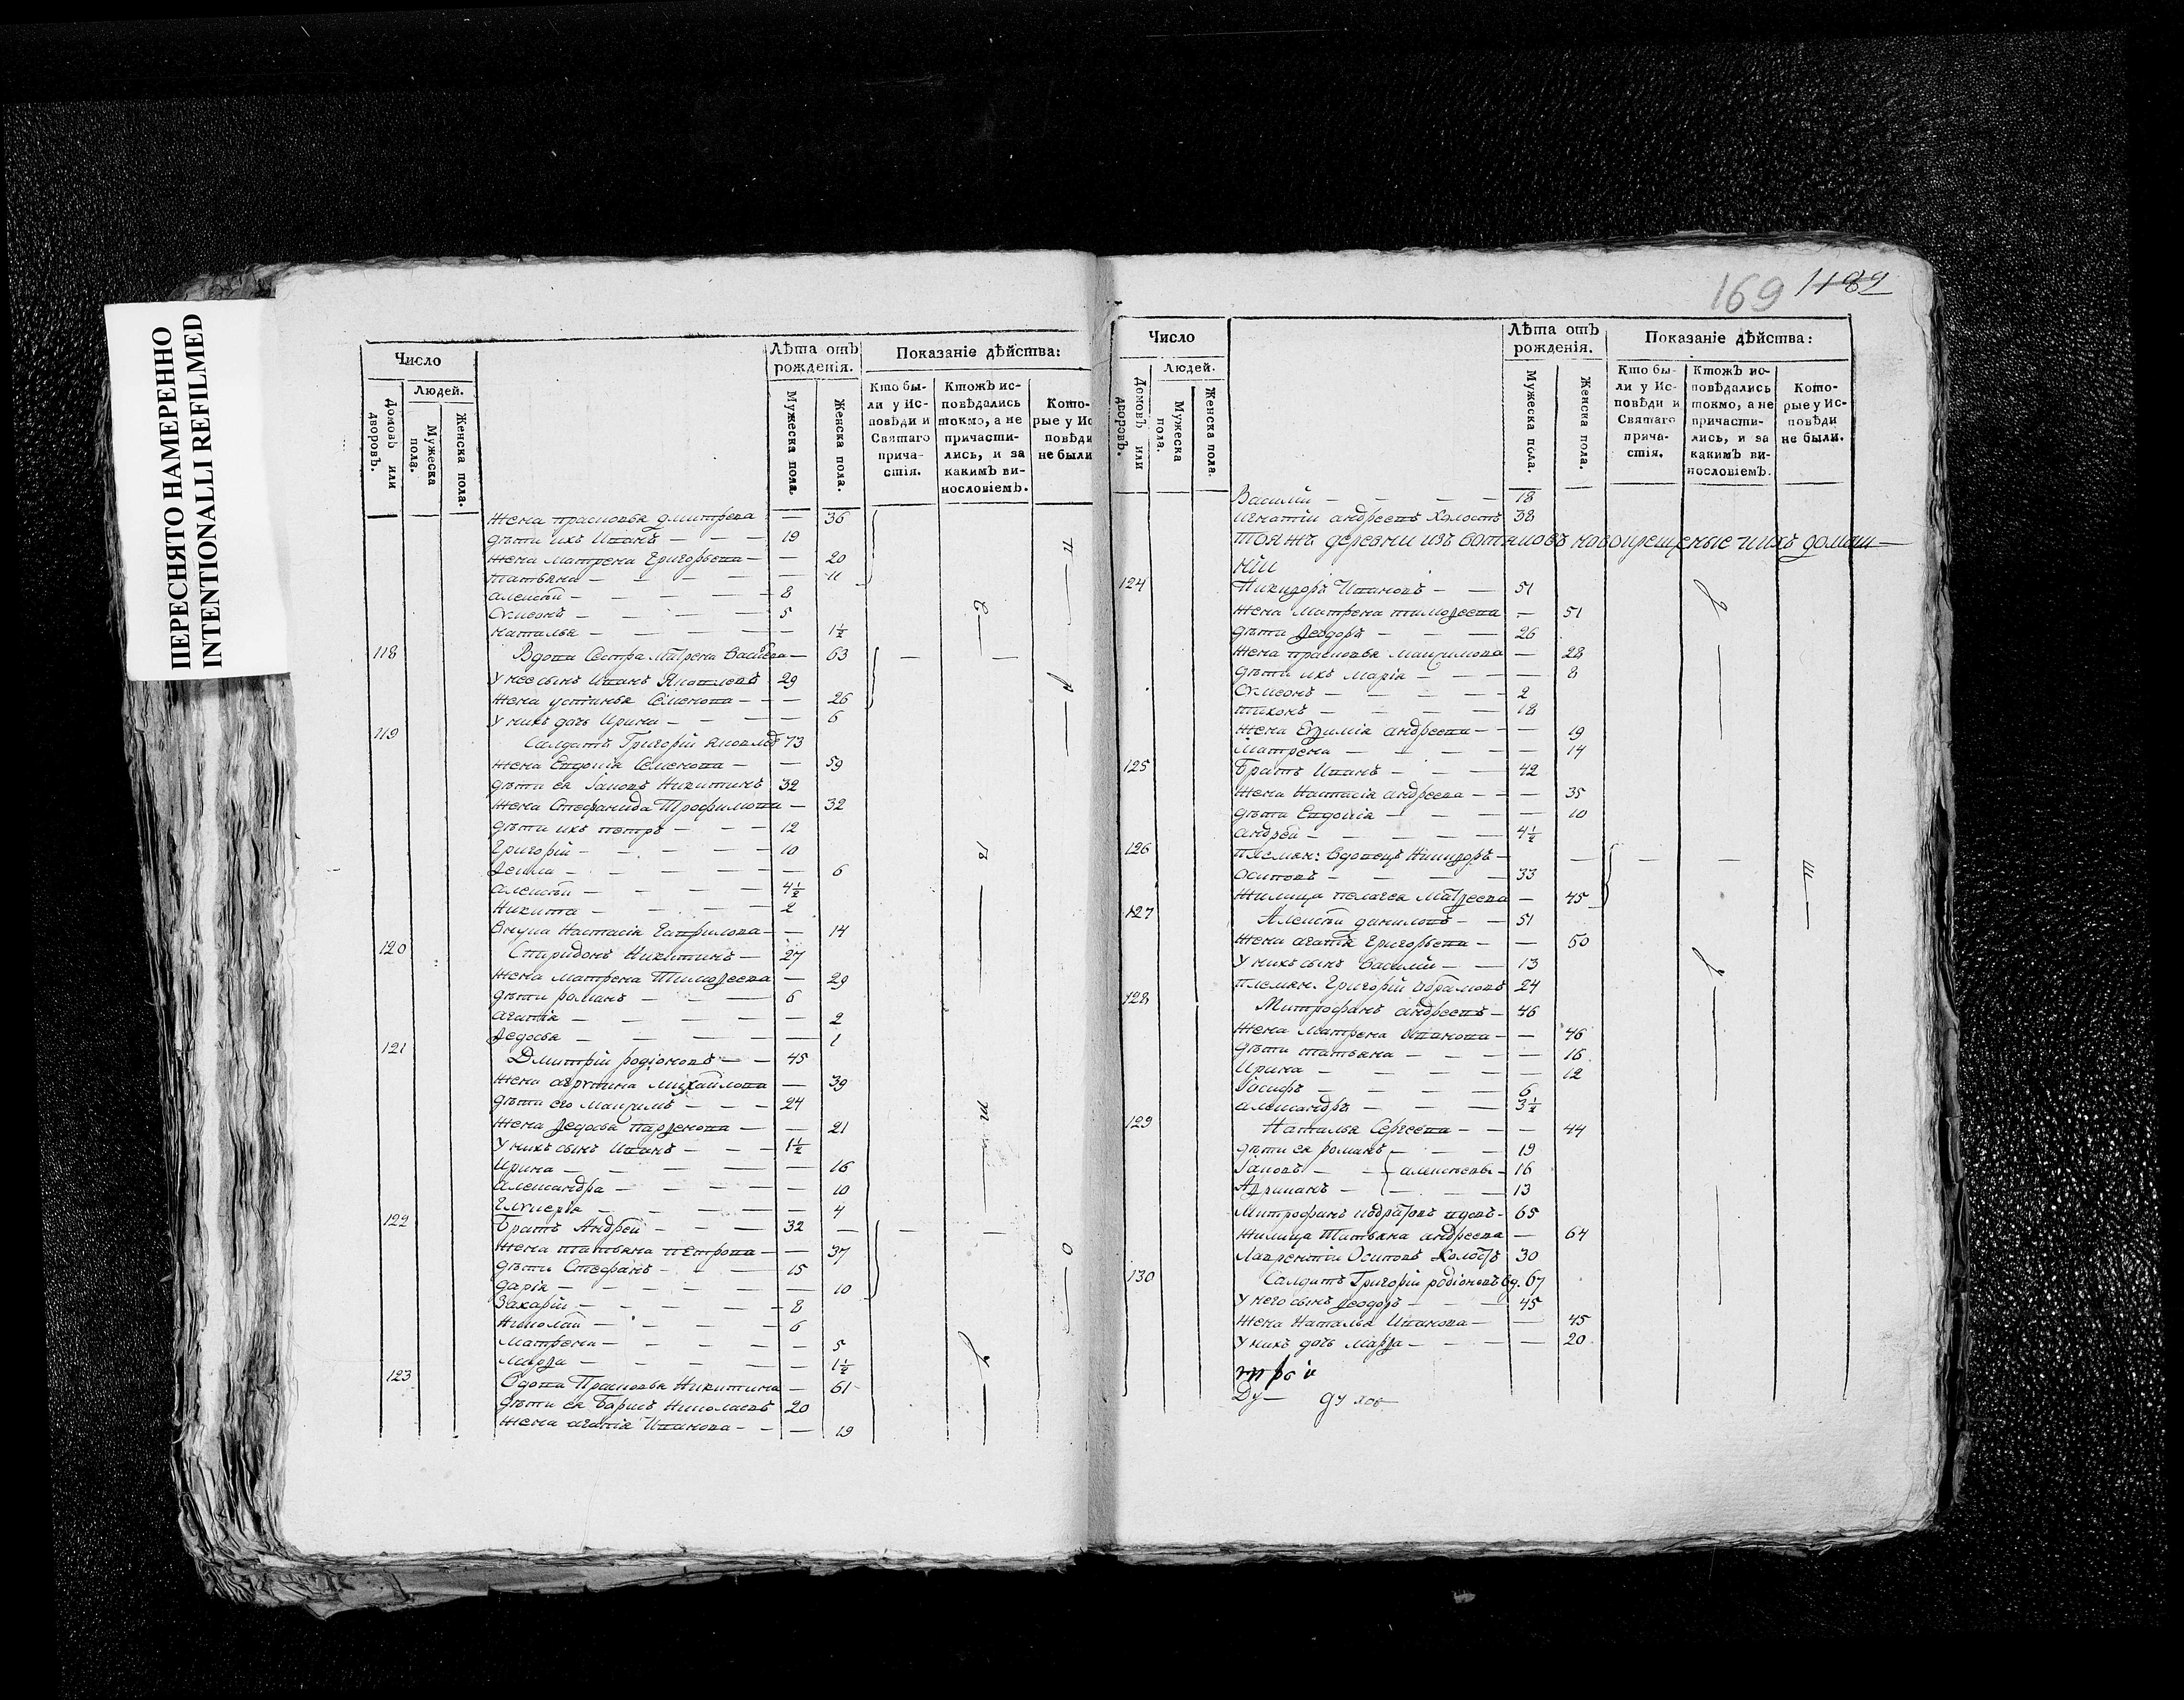 ПЕРЕСНЯТО НАМЕРЕННО
INTENTIONALLI REFILMED
Число
Людей.
Домовъ или дворовъ.
Мужеска пола.
Женска пола.
Лѣта отъ рожденія.
Мужеска пола.
Женска пола.
Показаніе дѣйства:
Кто были у Исповѣди и Святаго причастія.
Ктожъ исповѣдались токмо, а не причастились, и за какимъ винословіемъ.
Которые у Исповѣди не были
жена прасковья дмитрева — 36
дѣти ихъ Иванъ — 19
жена матрена Григорьева — 20
татьяна — 11
алексѣй — 8
Сѵмеонъ — 5
наталья — 1½
118 Вдова Сестра матрена Васильева — 63
У нее сынъ Иванъ Яковлевъ 29
жена устинья Семенова — 26
У нихъ дочь Ирина — 6
119 Салдатъ Григорій яковлев 73
жена Евдокія Семенова — 59
дѣти ея Іаковъ Никитинъ 32
жена Стефанида Трофимова — 32
дѣти ихъ петръ — 12
Григорій — 10
Ѳекла — 6
алексѣй — 4½
Никита — 2
Внука Настасія Гаврилова — 14
120 Спиридонъ Никитинъ — 27
жена матрена Тимоѳеева — 29
дѣти романъ — 6
агапія — 2
Ѳедосья — 1
121 Дмитрій родіоновъ — 45
жена агрѵпина михайлова — 39
дѣти его максимъ — 24
жена Ѳедосья парѳенова — 21
У нихъ сынъ Иванъ — 1½
Ирина — 16
александра — 10
Глѵкерія — 4
122 братъ Андрей — 32
жена татьяна петрова — 37
дѣти Стефанъ — 15
дарія — 10
Захарій — 8
Николай — 6
матрена — 5
марѳа — 1½
123 Вдова Прасковья Никитина — 61
дѣти ея Борисъ Николаевъ 20
жена агапія Иванова — 19
169 1189
Число
Людей.
Домовъ или дворовъ.
Мужеска пола.
Женска пола.
Лѣта отъ рожденія.
Мужеска пола.
Женска пола.
Показаніе дѣйства:
Кто были у Исповѣди и Святаго причастія.
Ктожъ исповѣдались токмо, а не причастились, и за какимъ винословіемъ.
Которые у Исповѣди не были.
Василій — 18
игнатій андреевъ холостъ 38
тояжъ деревни изъ вотяковъ новокрещеные и ихъ домаш-
нїи
124 Никиѳоръ Ивановъ — 51
жена матрена тимоѳеева — 51
дѣти Ѳеодоръ — 26
жена прасковья максимова — 28
дѣти ихъ марія — 8
Сѵмеонъ — 2
тихонъ — 18
жена Еѳимія андреева — 19
матрена — 14
125 братъ Иванъ — 42
жена Настасія андреева — 35
дѣти Евдокія — 10
андрей — 4½
126 племян: вдовецъ Никиѳоръ —
осиповъ — 33
жилица пелагея матѳеева — 45
127 Алексѣй даниловъ — 51
жена агапія Григорьева — 50
У нихъ сынъ Василій — 13
племян. Григорій абрамовъ 24
128 Митрофанъ андреевъ — 46
жена матрена Иванова — 46
дѣти татьяна — 16
Ирина — 12
Іосифъ — 6
александръ — 3½
129 Наталья Сергеева — 44
дѣти ея романъ — 19
Іаковъ — алексѣевы — 16
Адрианъ — 13
Митрофанъ 65
жилица Татьяна андреева — 64
лаврентій Осиповъ холостъ 30
130 Салдатъ Григорій родіоновъ вд. 67
У него сынъ Ѳеодоръ — 45
жена Наталья Иванова — 45
У нихъ дочь марѳа — 20
Ду— духов